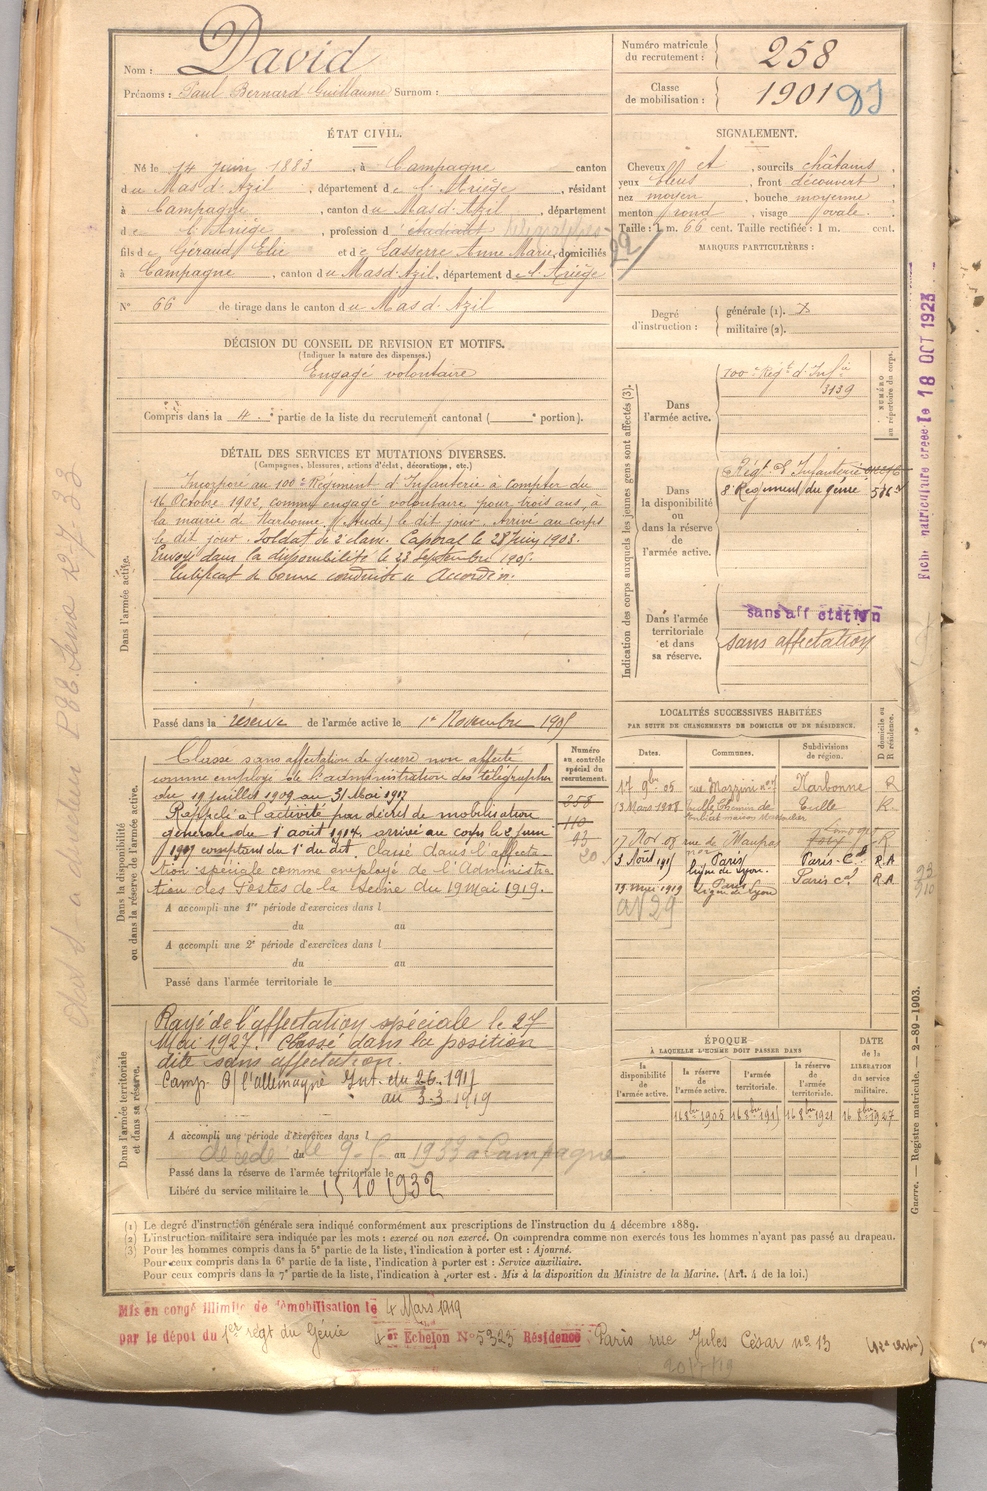 Nom : David
Prénoms : Paul Bernard Guillaume Surnom :
Numéro matricule du recrutement : 258
Classe de mobilisation : 1901
ÉTAT CIVIL.
Né le 14 Juin 1883, à Campagne canton
du Mas d'Azil, département de l'Ariège, résidant
à Campagne, canton du Mas d'Azil, département
de l'Ariège, profession d'étudiant
fils de Géraud Elie et de Lasserre Anne Marie, domiciliés
à Campagne, canton du Mas d'Azil, département de l'Ariège
N° 66 de tirage dans le canton du Mas d'Azil
SIGNALEMENT.
Cheveux et, sourcils châtains,
yeux bleus, front découvert
nez moyen, bouche moyenne
menton rond, visage ovale.
Taille : 1 m. 66 cent. Taille rectifiée : 1 m. cent.
MARQUES PARTICULIÈRES :
22
Degré d'instruction : générale (1).
militaire (2).
DÉCISION DU CONSEIL DE REVISION ET MOTIFS.
(Indiquer la nature des dispenses.)
Engagé volontaire
Compris dans la 4e partie de la liste du recrutement cantonal ( e portion).
DÉTAIL DES SERVICES ET MUTATIONS DIVERSES.
(Campagnes, blessures, actions d'éclat, décorations, etc.)
Dans l'armée active.
Incorporé au 100e Régiment d'Infanterie à compter du
16 Octobre 1902, comme engagé volontaire pour trois ans, à
la mairie de Narbonne (Aude) le dit jour. Arrivé au corps
le dit jour. Soldat de 2e classe. Caporal le 28 Juin 1903.
Envoyé dans la disponibilité le 23 Septembre 1905.
Certificat de bonne conduite Accordé.
Passé dans la réserve de l'armée active le 1er Novembre 1905
Indication des corps auxquels les jeunes gens sont affectés (3).
NUMÉRO au répertoire du corps.
Dans l'armée active.
100e Régt d'Infie
3139
Dans la disponibilité ou dans la réserve de l'armée active.
Régt d'Infanterie
8e Régiment du génie
Dans l'armée territoriale et dans sa réserve.
sans affectation
sans affectation
Fiche matriculaire créée le 18 OCT 1923
Dans la disponibilité ou dans la réserve de l'armée active.
Numéro au contrôle spécial du recrutement.
258
110
93
20
Classé sans affectation de guerre non affecté
comme employé de l'administration des télégraphes
du 19 juillet 1909 au 31 Mai 1917
Rappelé à l'activité par décret de mobilisation
générale du 1er août 1914, arrivé au corps le 2 juin
1917 comptant du 1er du dit. Classé dans l'affecta-
tion spéciale comme employé de l'Administra-
tion des Postes de la Seine du 19 mai 1919.
A accompli une 1re période d'exercices dans l
du au
A accompli une 2e période d'exercices dans l
du au
Passé dans l'armée territoriale le
LOCALITÉS SUCCESSIVES HABITÉES
PAR SUITE DE CHANGEMENTS DE DOMICILE OU DE RÉSIDENCE.
Dates. Communes. Subdivisions de région. D domicile ou R résidence.
17 9bre 05 rue Mazzini Narbonne R
13 Mars 1908 Tulle Chemin de Tulle R
17 Nov 09 rue de Maupas R
3 Août 1915 Paris ligne de Lyon. Paris Cal R.A
19 mai 1919 Paris ligne de Lyon Paris cal R.A
Dans l'armée territoriale et dans sa réserve.
Rayé de l'affectation spéciale le 27
Mai 1927. Classé dans la position
dite sans affectation.
Camp. c/ l'allemagne Int. du 2.6.1917
au 3.3.1919
A accompli une période d'exercices dans l
du au
décédé le 9 1933 à Campagne
Passé dans la réserve de l'armée territoriale le
Libéré du service militaire le 15 10 1932
ÉPOQUE
À LAQUELLE L'HOMME DOIT PASSER DANS
la disponibilité de l'armée active. la réserve de l'armée active. l'armée territoriale. la réserve de l'armée territoriale. DATE de la LIBÉRATION du service militaire.
16 8bre 1905 16 8bre 1915 16 8bre 1921 16 8bre 1927
Guerre. — Registre matricule. — 2-89-1903.
(1) Le degré d'instruction générale sera indiqué conformément aux prescriptions de l'instruction du 4 décembre 1889.
(2) L'instruction militaire sera indiquée par les mots : exercé ou non exercé. On comprendra comme non exercés tous les hommes n'ayant pas passé au drapeau.
(3) Pour les hommes compris dans la 5e partie de la liste, l'indication à porter est : Ajourné.
Pour ceux compris dans la 6e partie de la liste, l'indication à porter est : Service auxiliaire.
Pour ceux compris dans la 7e partie de la liste, l'indication à porter est : Mis à la disposition du Ministre de la Marine. (Art. 4 de la loi.)
Mis en congé illimité de démobilisation le 4 Mars 1919
par le dépôt du 1er régt du Génie 4e Echelon N° 5323 Résidence : Paris rue Jules César no 13